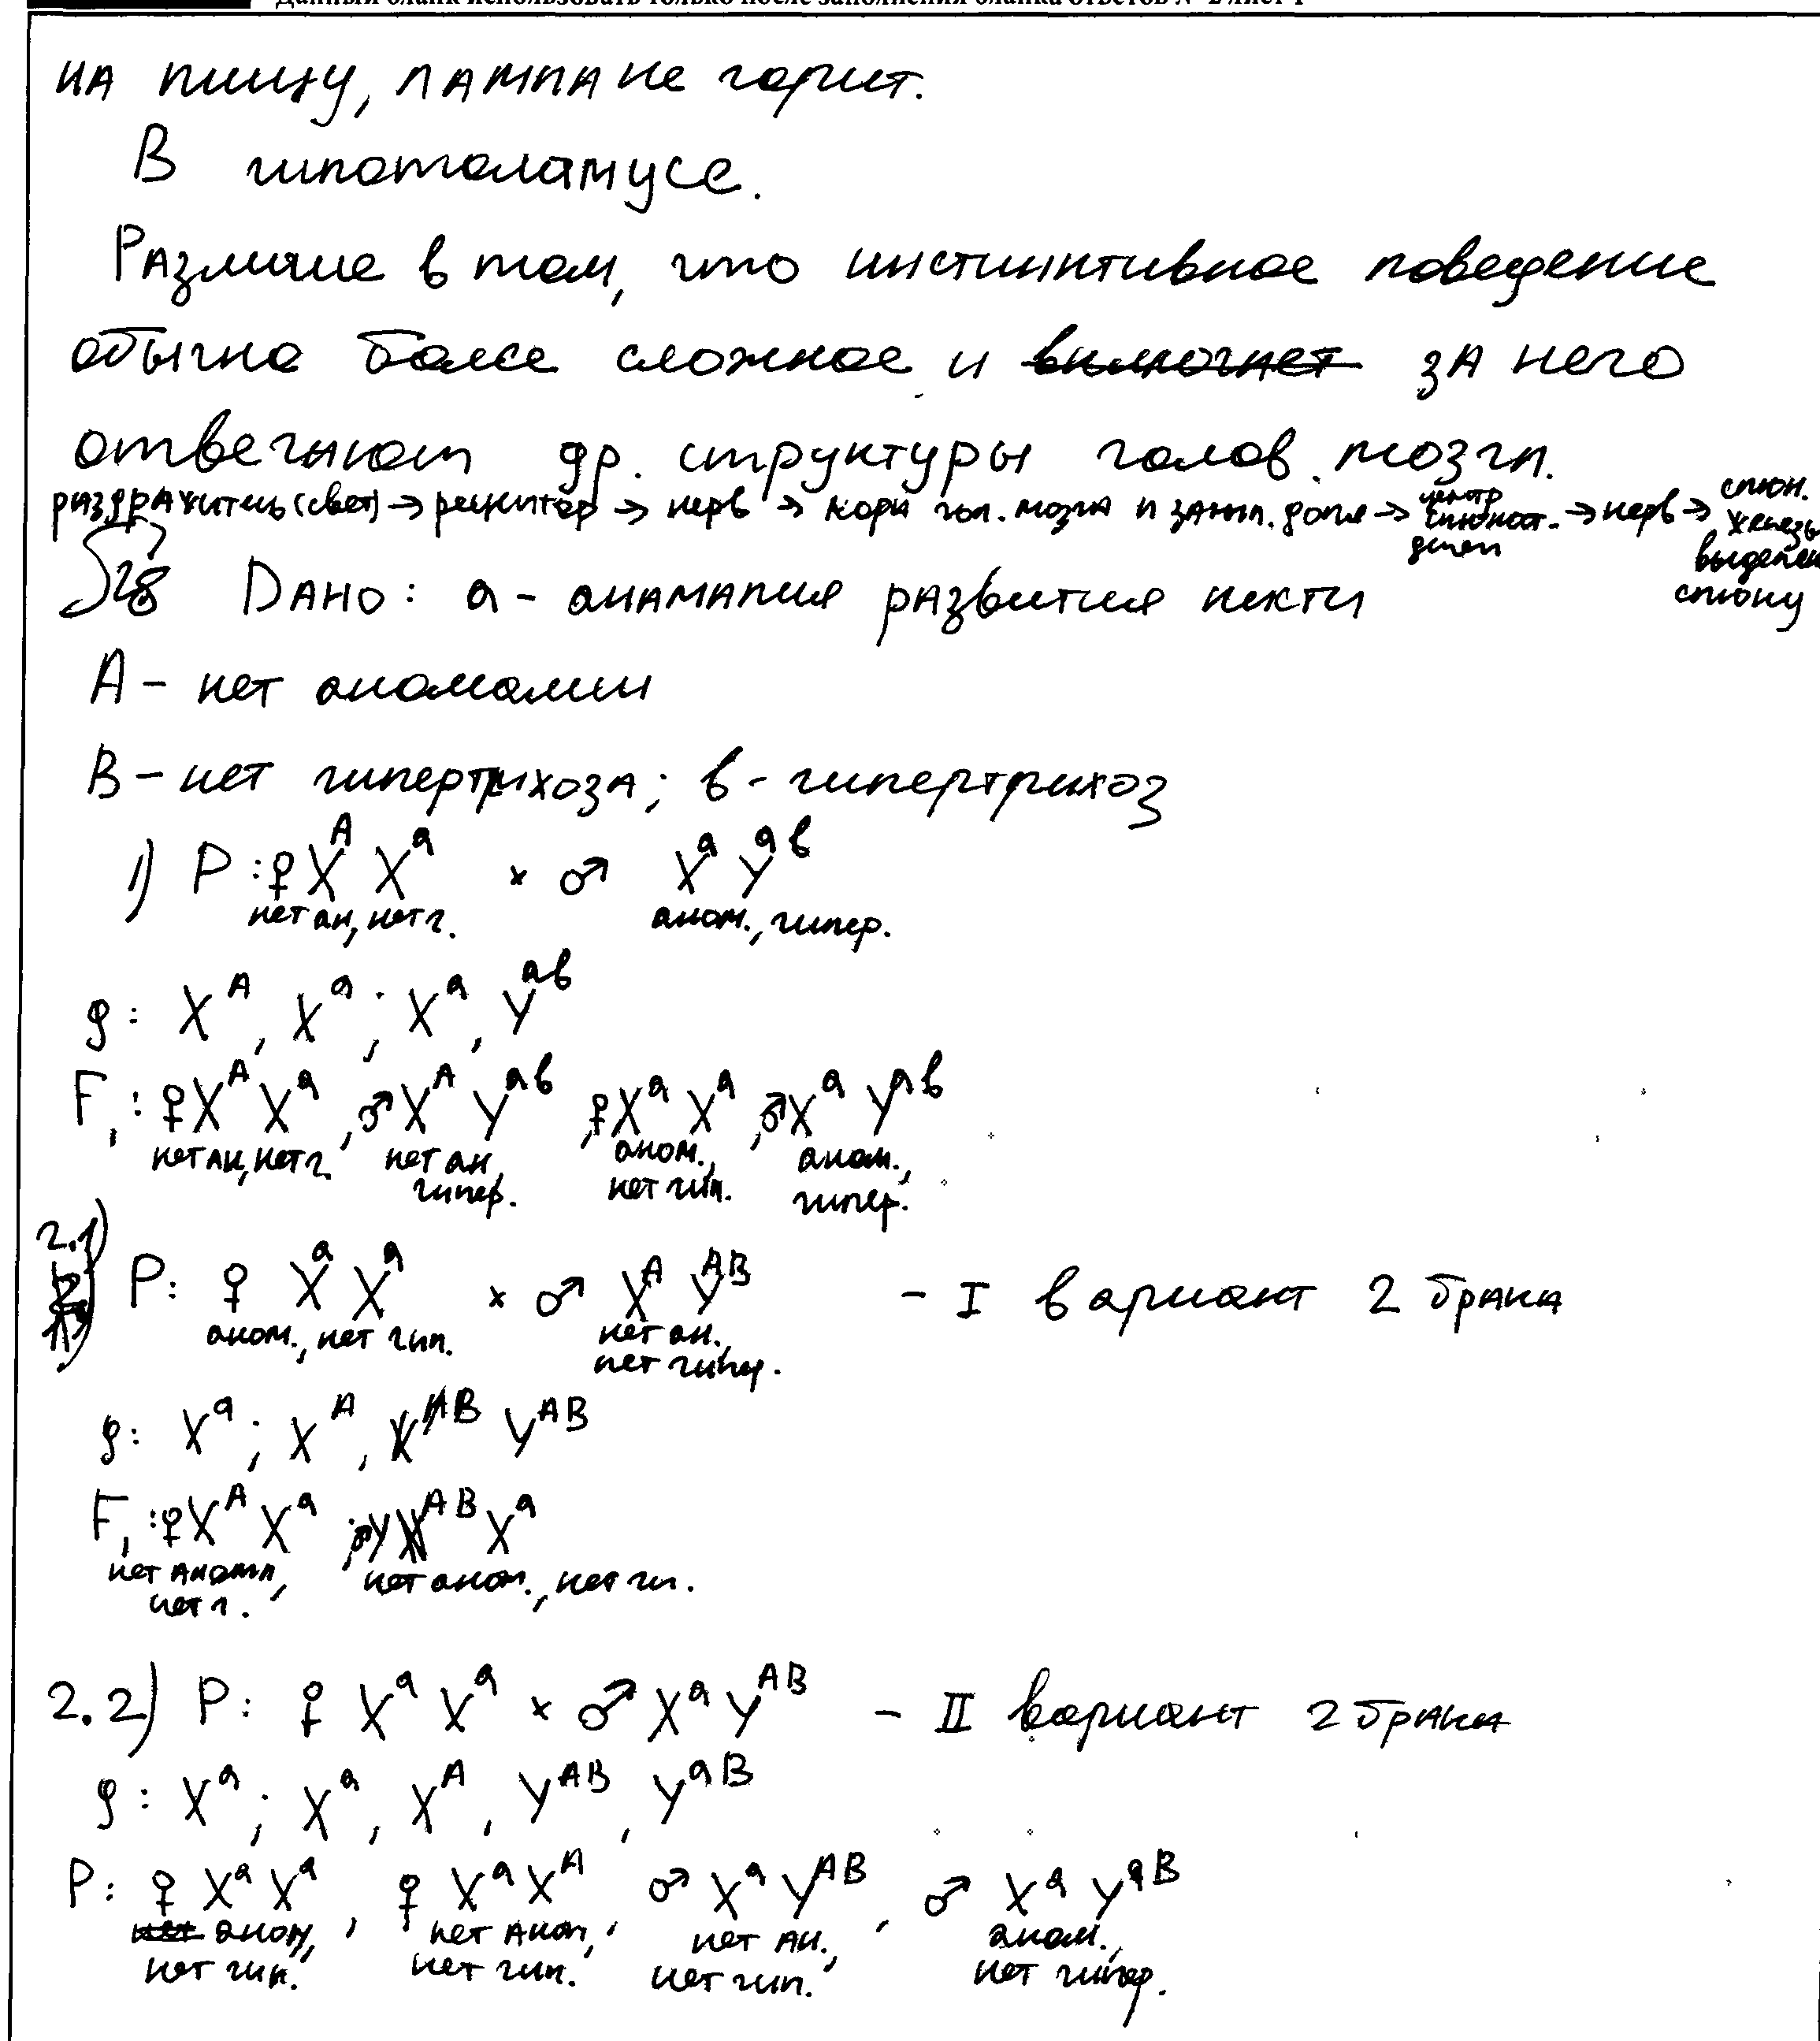 Данный бланк использовать только после заполнения бланка ответов № 2 лист 1
на пищу, лампа не горит.
В гипоталамусе.
Различие в том, что инстинктивное поведение
обычно более сложное и включает за него
отвечают др. структуры голов. мозга.
раздражитель (свет) → рецептор → нерв → кора гол. мозга и затыл. доля → центр слюноот- деления → нерв → слюн. железы выделен слюну
28 Дано: a - анамалия развития кисти
A - нет аномалии
B - нет гипертрихоза; в - гипертрихоз
1) P: ♀ X^A X^a × ♂ X^a Y^aв
нет ан, нет г. аном., гипер.
g: X^A, X^a; X^a, Y^aв
F₁: ♀X^A X^a, ♂X^A Y^aв, ♀X^a X^a, ♂X^a Y^aв
нет ан, нет г. нет ан, гипер. аном., нет гип. аном., гипер.
2.1) P: ♀ X^a X^a × ♂ X^A Y^AB - I вариант 2 брака
аном., нет гип. нет ан., нет гипер.
g: X^a; X^A, Y^AB
F₁: ♀X^A X^a; ♂Y^AB X^a
нет аномл, нет г. нет аном., нет ги.
2.2) P: ♀ X^a X^a × ♂ X^a Y^AB - II вариант 2 брака
g: X^a; X^a, X^A, Y^AB, Y^aB
P: ♀ X^a X^a, ♀ X^a X^A, ♂ X^a Y^AB, ♂ X^a Y^aB
нет аном, нет гип. нет аном, нет гип. нет ан., нет гип. аном., нет гипер.